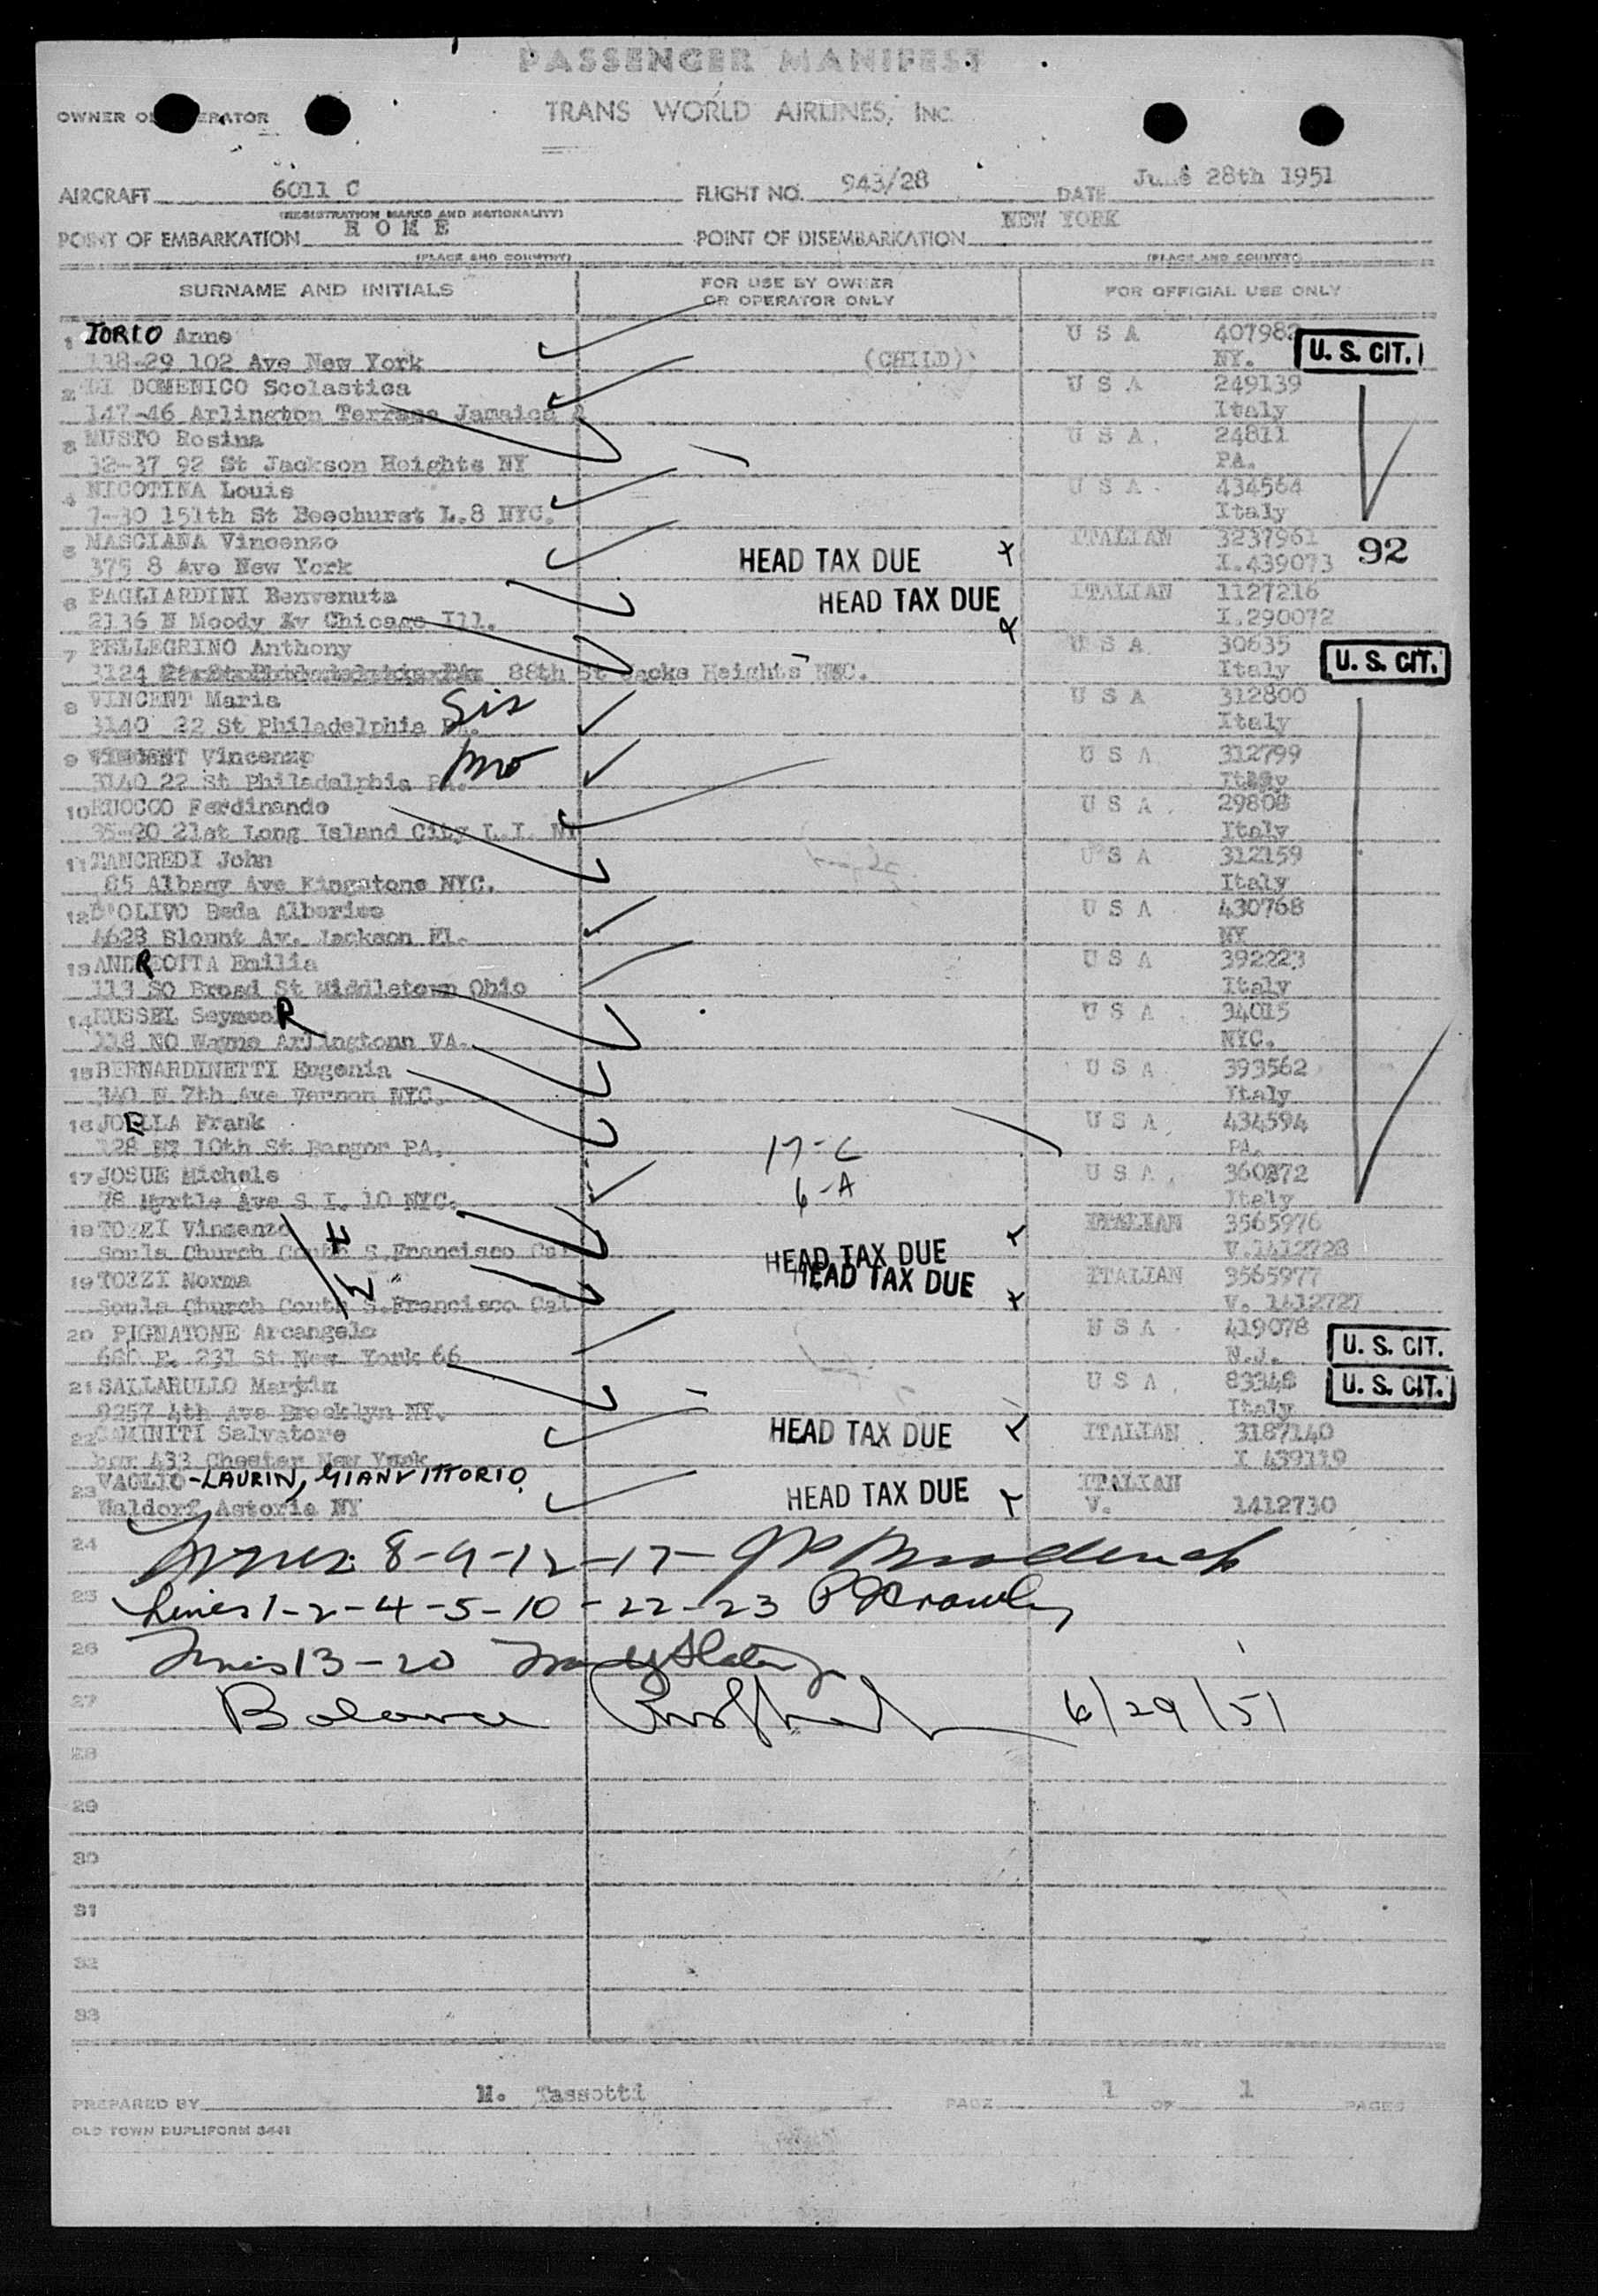 PASSENGER MANIFEST
OWNER OR OPERATOR TRANS WORLD AIRLINES, INC.
AIRCRAFT 6011 C FLIGHT NO. 943/28 DATE June 28th 1951
(REGISTRATION MARKS AND NATIONALITY)
POINT OF EMBARKATION R O M E POINT OF DISEMBARKATION NEW YORK
(PLACE AND COUNTRY) (PLACE AND COUNTRY)
SURNAME AND INITIALS FOR USE BY OWNER OR OPERATOR ONLY FOR OFFICIAL USE ONLY
1 IORIO Anne U S A 407982 U. S. CIT.
118-29 102 Ave New York (CHILD) NY.
2 DI DOMENICO Scolastica U S A 249139
147-46 Arlington Terrace Jamaica 2 Italy
3 MUSTO Rosina U S A. 24811
32-37 92 St Jackson Heights NY PA.
4 NICOTINA Louis U S A. 434564
7-30 151th St Beechurst L.8 NYC. Italy
5 MASCIANA Vincenzo HEAD TAX DUE ITALIAN 3237961 92
375 8 Ave New York I.439073
6 PAGLIARDINI Benvenuta HEAD TAX DUE ITALIAN 1127216
2136 N Moody Av Chicago Ill. I.290072
7 PELLEGRINO Anthony U S A 30635 U. S. CIT.
3124 88th St Jacks Heights NYC. Italy
8 VINCENT Maria Sis U S A 312800
3140 22 St Philadelphia PA. Italy
9 VINCENT Vincenzo Bro U S A 312799
3140 22 St Philadelphia PA. Italy
10 RUOCCO Ferdinando U S A. 29808
35-20 21st Long Island City L.I. NY Italy
11 TANCREDI John U S A 312159
85 Albany Ave Kingstone NYC. Italy
12 D'OLIVO Beda Alberico U S A 430768
4628 Blount Av. Jackson Fl. NY
13 ANDREOTTA Emilia U S A 392223
113 SO Broad St Middletown Ohio Italy
14 RUSSEL SeymooR U S A 34015
118 NO Wayne Arlingtonn VA. NYC.
15 BERNARDINETTI Eugenia U S A 393562
340 N 7th Ave Vernon NYC. Italy
16 JOELLA Frank U S A 434594
128 10th St Bangor PA. 17-C PA.
17 JOSUE Michele 6-A U S A. 360872
78 Myrtle Ave S I. 10 NYC. Italy
18 TOZZI Vincenzo H ITALIAN 3565976
Souls Church South S.Francisco Cal HEAD TAX DUE V.1412728
19 TOZZI Norma W HEAD TAX DUE ITALIAN 3565977
Souls Church South S.Francisco Cal V. 1412727
20 PIGNATONE Arcangelo U S A 419078 U. S. CIT.
680 E. 231 St New York 66 N.J.
21 SALLARULLO Martin U S A. 83348 U. S. CIT.
9257 4th Ave Brooklyn NY. Italy
22 CAMINITI Salvatore HEAD TAX DUE ITALIAN 3187140
box 433 Chester New York I 439119
23 VAGLIO-LAURIN, GIANVITTORIO. ITALIAN
Waldorf Astoria NY HEAD TAX DUE V. 1412730
24 Lines 8-9-12-17-
25 Lines 1-2-4-5-10-22-23
26 Lines 13-20
27 Balance 6/29/51
28
29
30
31
32
33
PREPARED BY M. Tassotti PAGE 1 OF 1 PAGES
OLD TOWN DUPLIFORM 3441